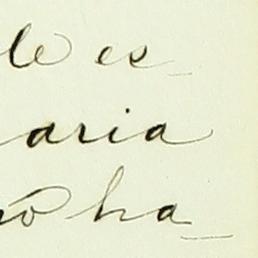 le es-
aria
no ha-